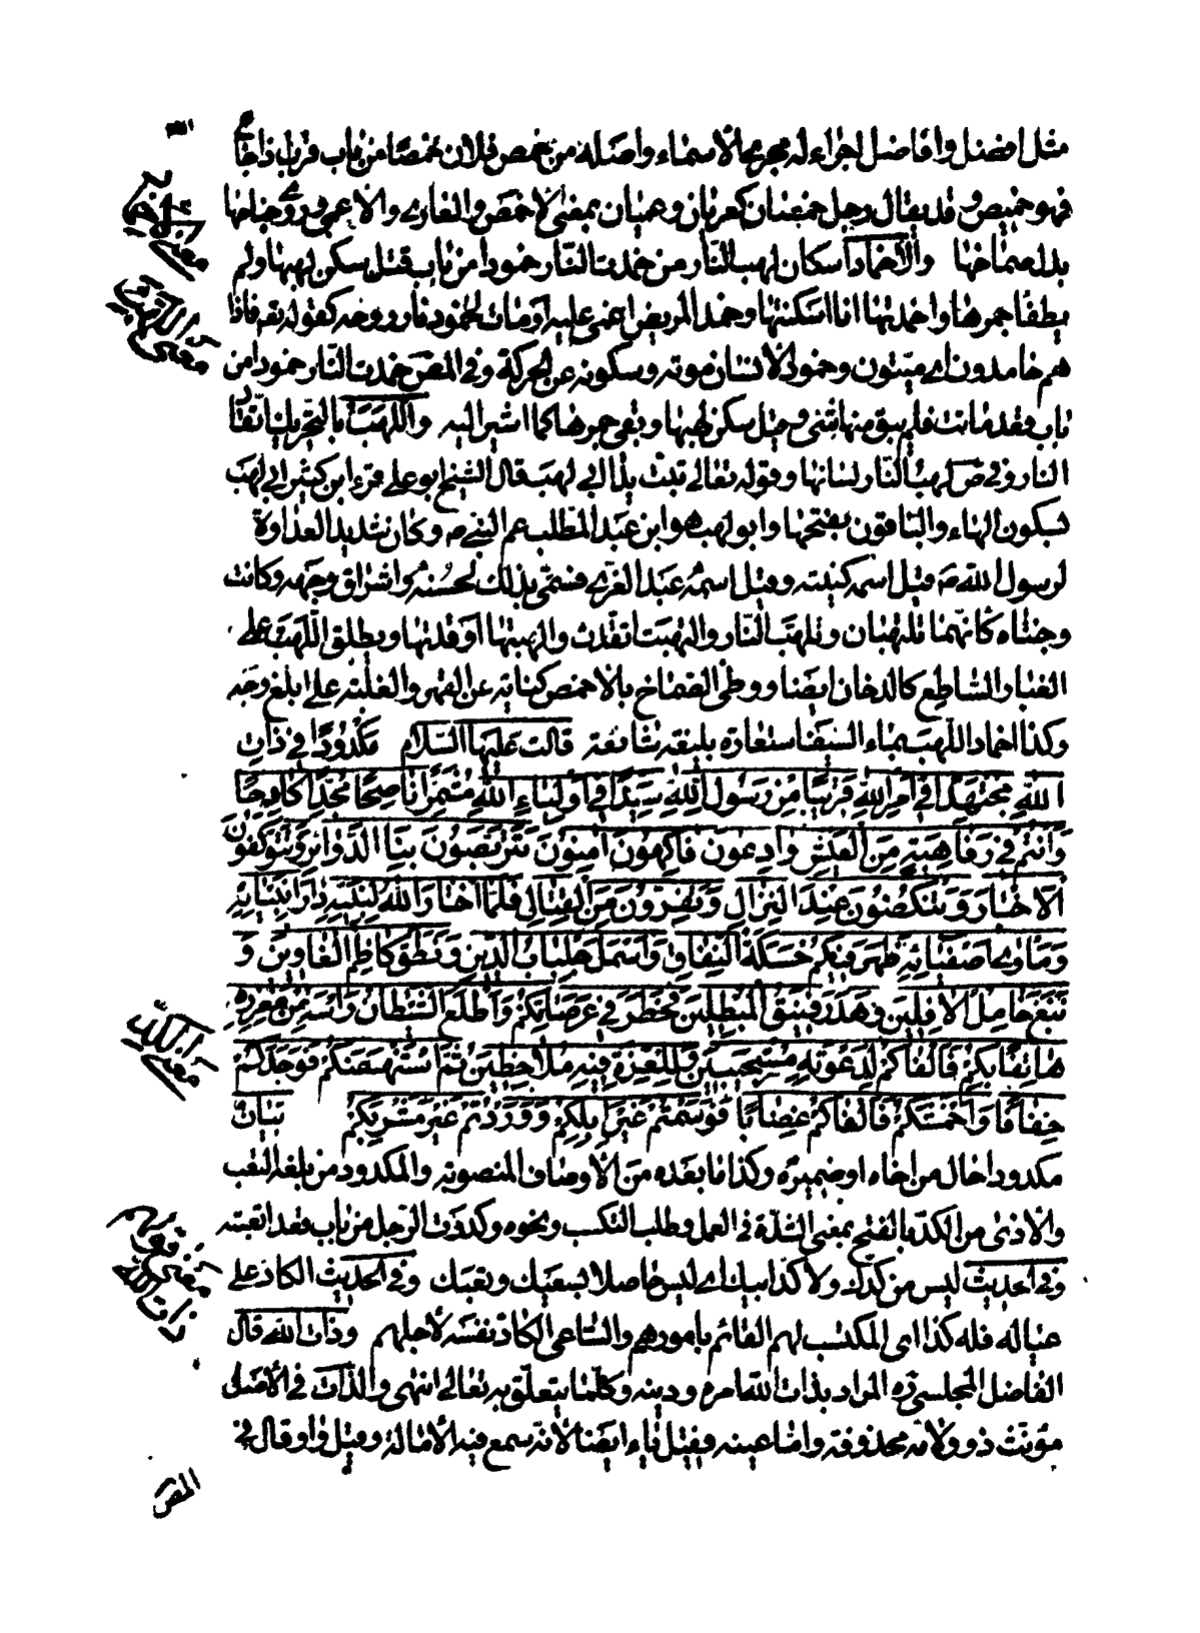 مثل افضل وافاضل اجراء له مجرى الاسماء واصله من خمص فلان خمصا من باب قرب اذا جاع
فهو خميص وقد يقال رجل خمصان كعريان وعميان بمعنى الاخمص والعارى والاعمى وروى جناحها
بدل صماخها والاخماد اسكان لهب النار من خمدت النار خمودا من باب قتل سكن لهبها ولم
يطفأ جمرها واخمدتها انا اسكنتها وخمد المريض اغمى عليه او مات لخمود نار روحه كقوله تعه فاذا
هم خامدون اى ميتون وخمود الانسان موته وسكونه عن الحركة وفى المص خمدت النار خمودا من
باب قعد ماتت فلم يبق منها شئ وقيل سكن لهبها وبقى جمرها كما اشير اليه واللهب بالتحريك اتقاد
النار وفى ص لهب النار لسانها وقوله تعالى تبت يدا ابى لهب قال الشيخ ابو على قرء ابن كثير ابى لهب
بسكون الهاء والباقون بفتحها وابو لهب هو ابن عبد المطلب عم النبى ص وكان شديد العداوة
لرسول الله ص قيل اسمه كنيته وقيل اسمه عبد العزى فسمى بذلك لحسنه واشراق وجهه وكانت
وجنتاه كانهما تلتهبان وتلهب النار والتهبت اتقدت والهبتها اوقدتها ويطلق اللهب على
الغبار الساطع كالدخان ايضا ووطى الصماخ بالاخمص كناية عن القهر والغلبة على ابلغ وجه
وكذا اخماد اللهب بماء السيف استعارة بليغة شائعة قالت عليها السلام مكدودا فى ذات
الله مجتهدا فى امر الله قريبا من رسول الله سيدا فى اولياء الله مشمرا ناصحا مجدا كادحا
وانتم فى رفاهية من العيش وادعون فاكهون آمنون تتربصون بنا الدوائر وتتوكفون
الاخبار وتنكصون عند النزال وتفرون من القتال فلما اختار الله لنبيه دار انبيائه
وماوى اصفيائه ظهر فيكم حسكة النفاق واسمل جلباب الدين ونطق كاظم الغاوين و
نبغ خامل الافلين وهدر فنيق المبطلين فخطر فى عرصاتكم واطلع الشيطان راسه من مغرزه
هاتفا بكم فالفاكم لدعوته مستجيبين وللعزة فيه ملاحظين ثم استنهضكم فوجدكم
خفافا واحمشكم فالفاكم غضابا فوسمتم غير ابلكم ووردتم غير مشربكم بيان
مكدودا حال من اخاه او ضميره وكذا ما بعده من الاوصاف المنصوبة والمكدود من بلغه التعب
والاذى من الكد بالفتح بمعنى الشدة فى العمل وطلب الكسب ونحوه وكددت الرجل من باب قعد اتعبته
وفى الحديث ليس من كدك ولا كد ابيك اى ليس حاصلا بسعيك وتعبك وفى الحديث الكاد على
عياله فله كذا اى المكتسب لهم القائم بامورهم والساعى الكاد نفسه لاجلهم وذات الله قال
الفاضل المجلسى ره المراد بذات الله امره ودينه وكلما يتعلق به تعالى انتهى والذات فى الاصل
مؤنث ذو ولامه محذوفة واما عينه فقيل ياء ايضا لانه سمع فيه الامالة وقيل واو قال فى
المص
معنى الاخماد
معنى اللهب
معنى الكد
معنى قوله
ذات الله